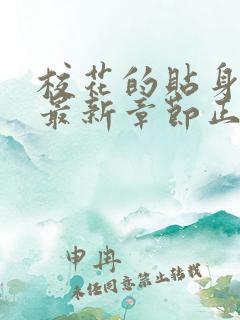 校花的贴身
最新章节正
申冉
未经同意禁止转载